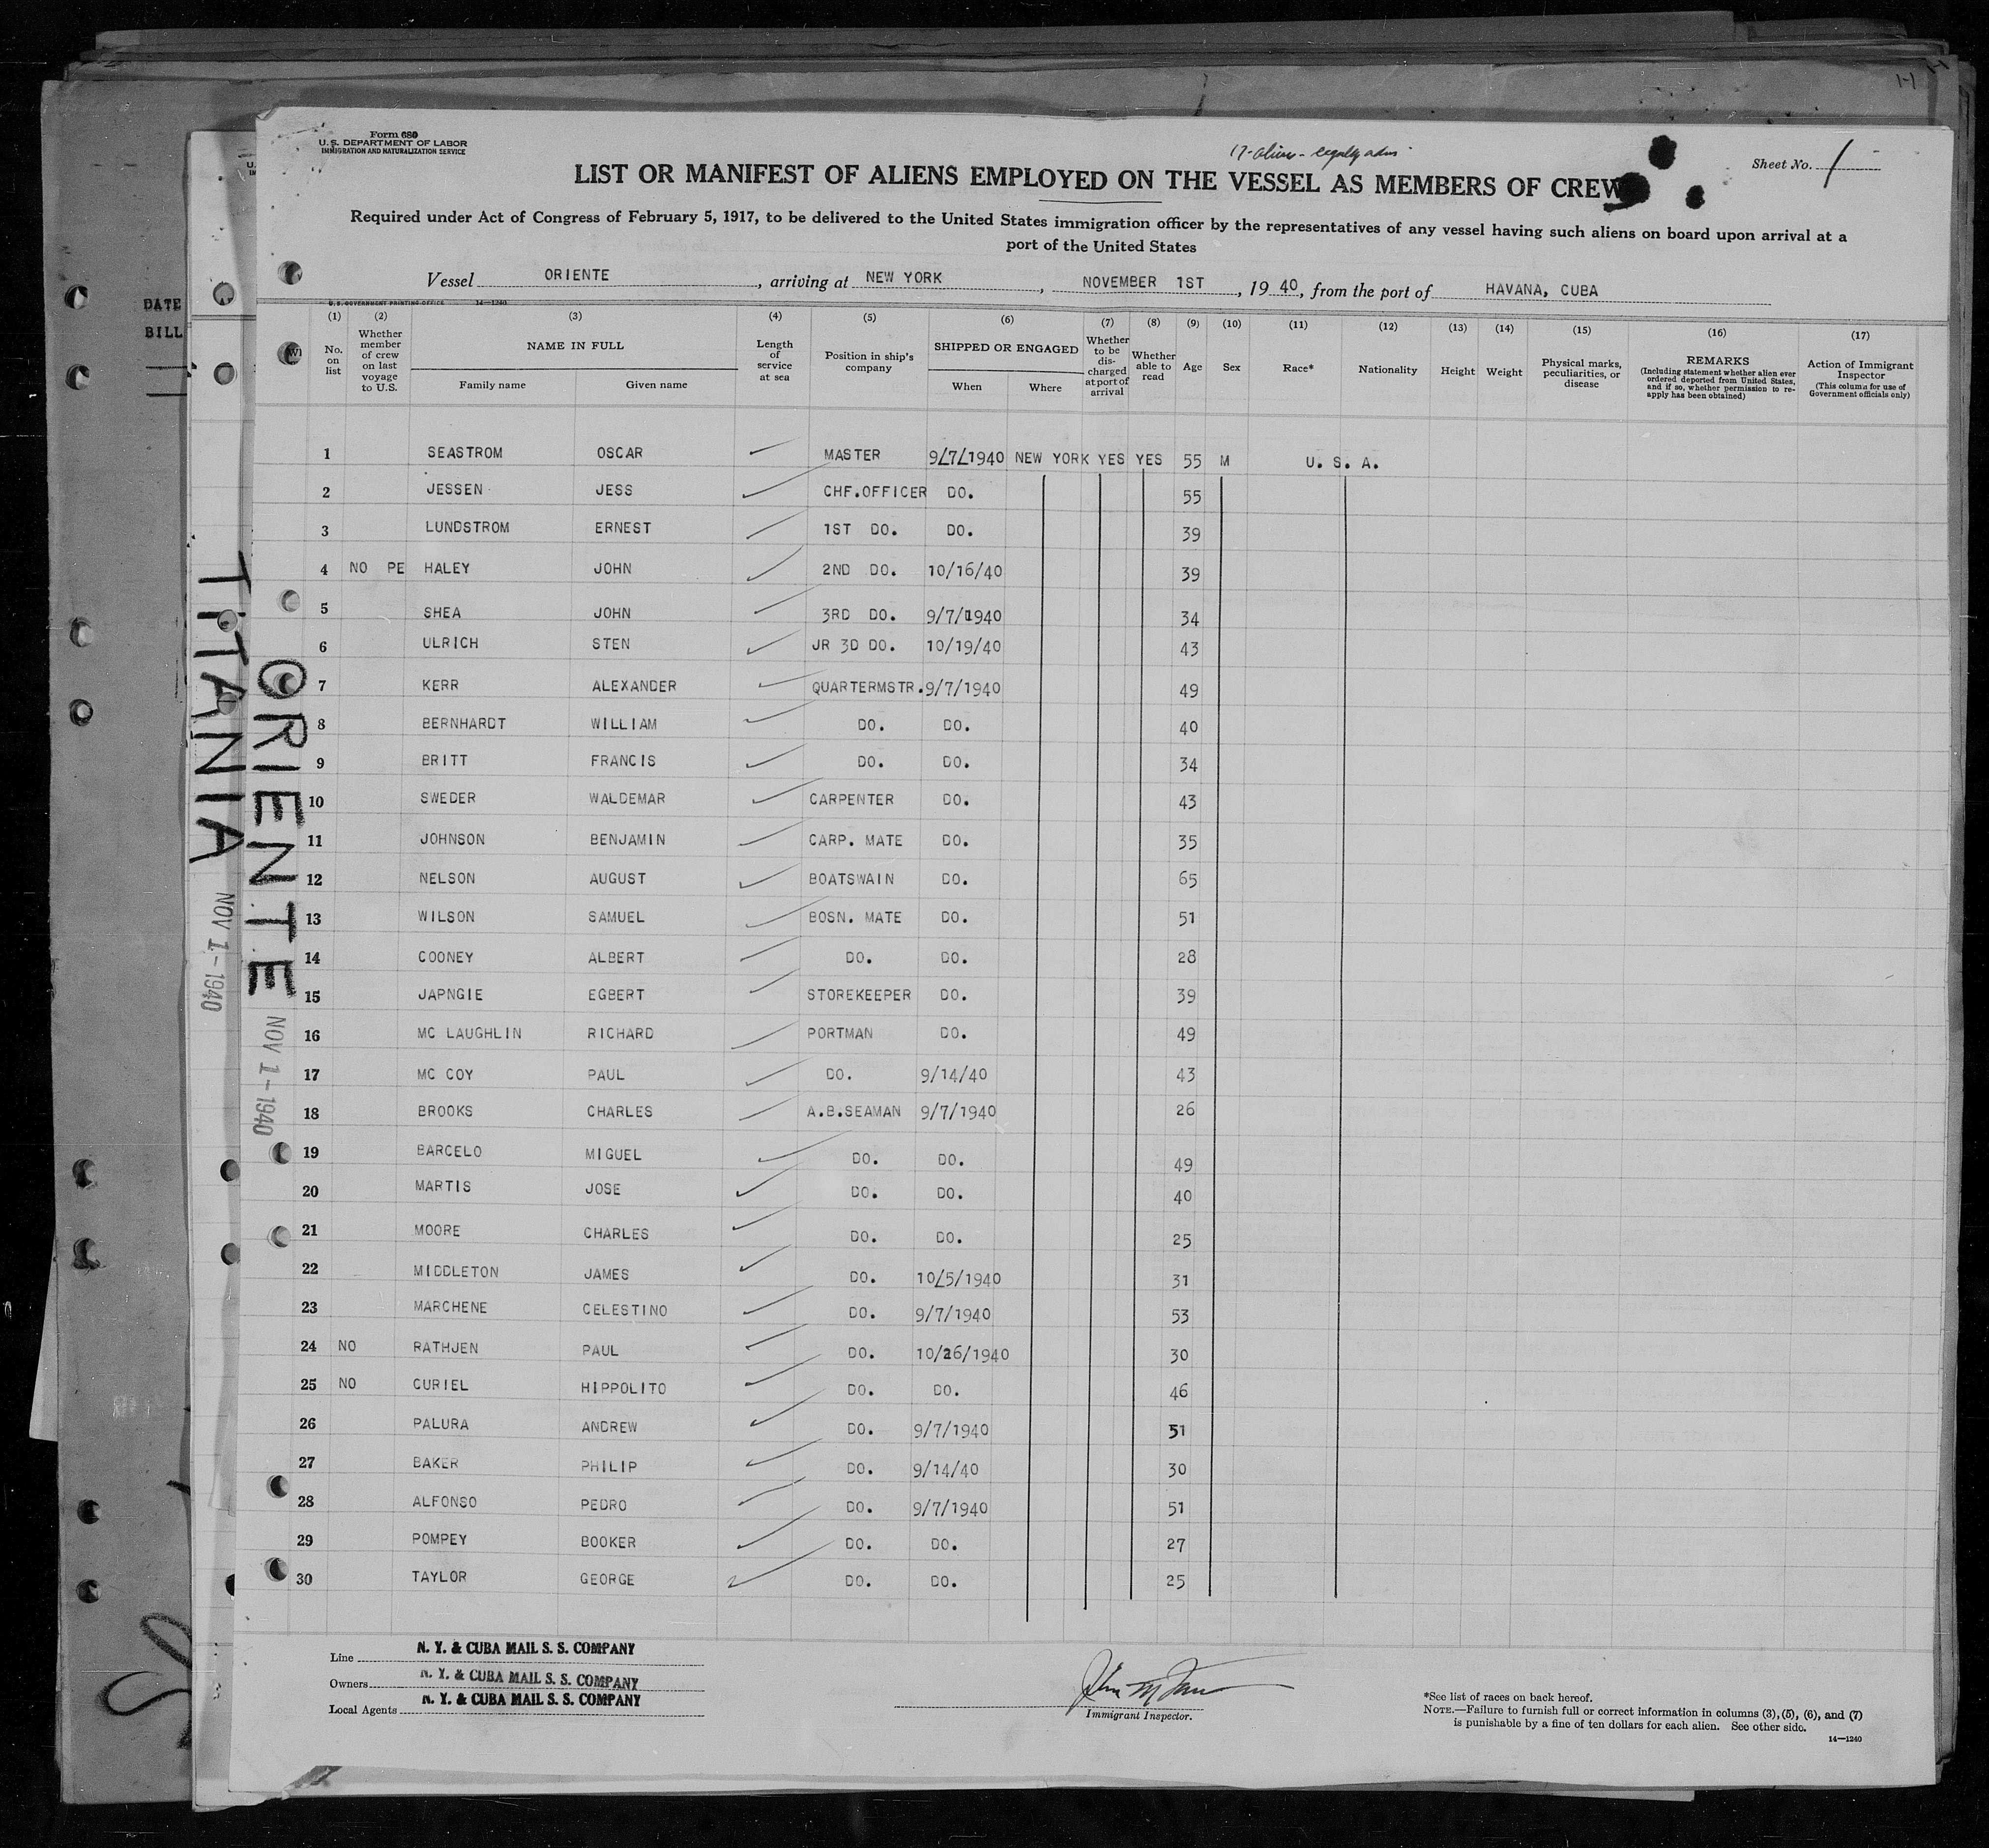 Form 680
U. S. DEPARTMENT OF LABOR
IMMIGRATION AND NATURALIZATION SERVICE
Sheet No. 1
LIST OR MANIFEST OF ALIENS EMPLOYED ON THE VESSEL AS MEMBERS OF CREW
Required under Act of Congress of February 5, 1917, to be delivered to the United States immigration officer by the representatives of any vessel having such aliens on board upon arrival at a
port of the United States
Vessel ORIENTE, arriving at NEW YORK, NOVEMBER 1ST, 19 40, from the port of HAVANA, CUBA
U. S. GOVERNMENT PRINTING OFFICE 14—1240
(1) (2) (3) (4) (5) (6) (7) (8) (9) (10) (11) (12) (13) (14) (15) (16) (17)
No. on list
Whether member of crew on last voyage to U.S.
NAME IN FULL
Family name
Given name
Length of service at sea
Position in ship's company
SHIPPED OR ENGAGED
When
Where
Whether to be discharged at port of arrival
Whether able to read
Age
Sex
Race*
Nationality
Height
Weight
Physical marks, peculiarities, or disease
REMARKS
(Including statement whether alien ever ordered deported from United States, and if so, whether permission to reapply has been obtained)
Action of Immigrant Inspector
(This column for use of Government officials only)
1 SEASTROM OSCAR MASTER 9/7/1940 NEW YORK YES YES 55 M U. S. A.
2 JESSEN JESS CHF.OFFICER DO. 55
3 LUNDSTROM ERNEST 1ST DO. DO. 39
4 NO PE HALEY JOHN 2ND DO. 10/16/40 39
5 SHEA JOHN 3RD DO. 9/7/1940 34
6 ULRICH STEN JR 3D DO. 10/19/40 43
7 KERR ALEXANDER QUARTERMSTR. 9/7/1940 49
8 BERNHARDT WILLIAM DO. DO. 40
9 BRITT FRANCIS DO. DO. 34
10 SWEDER WALDEMAR CARPENTER DO. 43
11 JOHNSON BENJAMIN CARP. MATE DO. 35
12 NELSON AUGUST BOATSWAIN DO. 65
13 WILSON SAMUEL BOSN. MATE DO. 51
14 COONEY ALBERT DO. DO. 28
15 JAPNGIE EGBERT STOREKEEPER DO. 39
16 MC LAUGHLIN RICHARD PORTMAN DO. 49
17 MC COY PAUL DO. 9/14/40 43
18 BROOKS CHARLES A.B.SEAMAN 9/7/1940 26
19 BARCELO MIGUEL DO. DO. 49
20 MARTIS JOSE DO. DO. 40
21 MOORE CHARLES DO. DO. 25
22 MIDDLETON JAMES DO. 10/5/1940 31
23 MARCHENE CELESTINO DO. 9/7/1940 53
24 NO RATHJEN PAUL DO. 10/26/1940 30
25 NO CURIEL HIPPOLITO DO. DO. 46
26 PALURA ANDREW DO. 9/7/1940 51
27 BAKER PHILIP DO. 9/14/40 30
28 ALFONSO PEDRO DO. 9/7/1940 51
29 POMPEY BOOKER DO. DO. 27
30 TAYLOR GEORGE DO. DO. 25
Line N. Y. & CUBA MAIL S. S. COMPANY
Owners N. Y. & CUBA MAIL S. S. COMPANY
Local Agents N. Y. & CUBA MAIL S. S. COMPANY
Immigrant Inspector.
*See list of races on back hereof.
NOTE.—Failure to furnish full or correct information in columns (3), (5), (6), and (7)
is punishable by a fine of ten dollars for each alien. See other side.
14—1240
ORIENTE
NOV 1-1940
TITANIA
NOV 1-1940
DATE
BILL